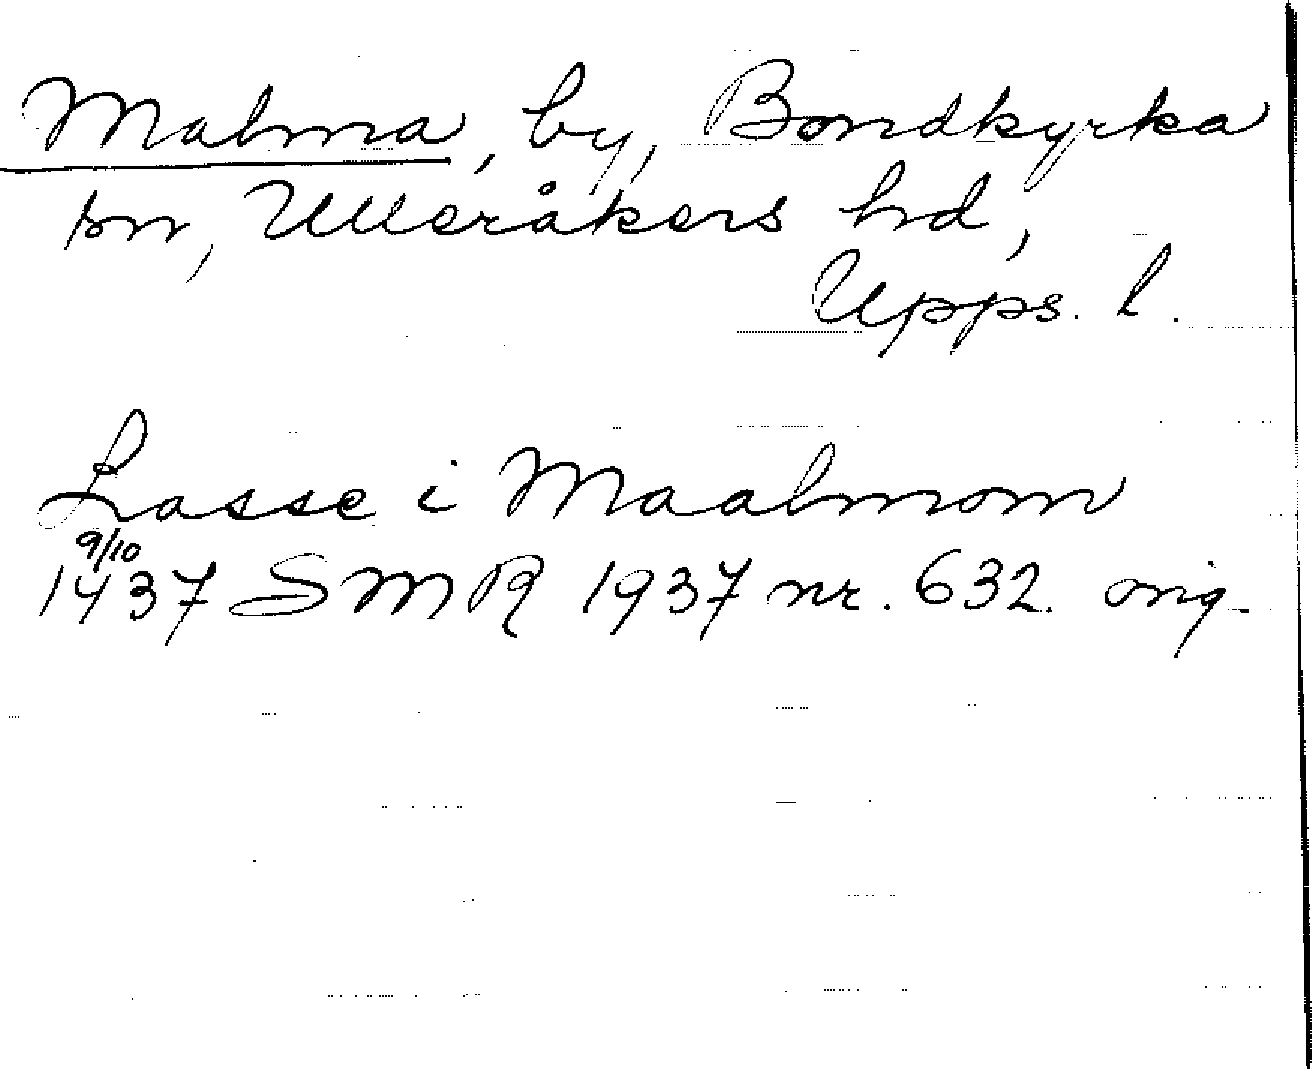 Malma, by, Bondkyrka
sn, Ulleråkers hd,
Upps. l.
Lasse i Maalmom
9/10
1437 SMR 1937 nr. 632. orig.